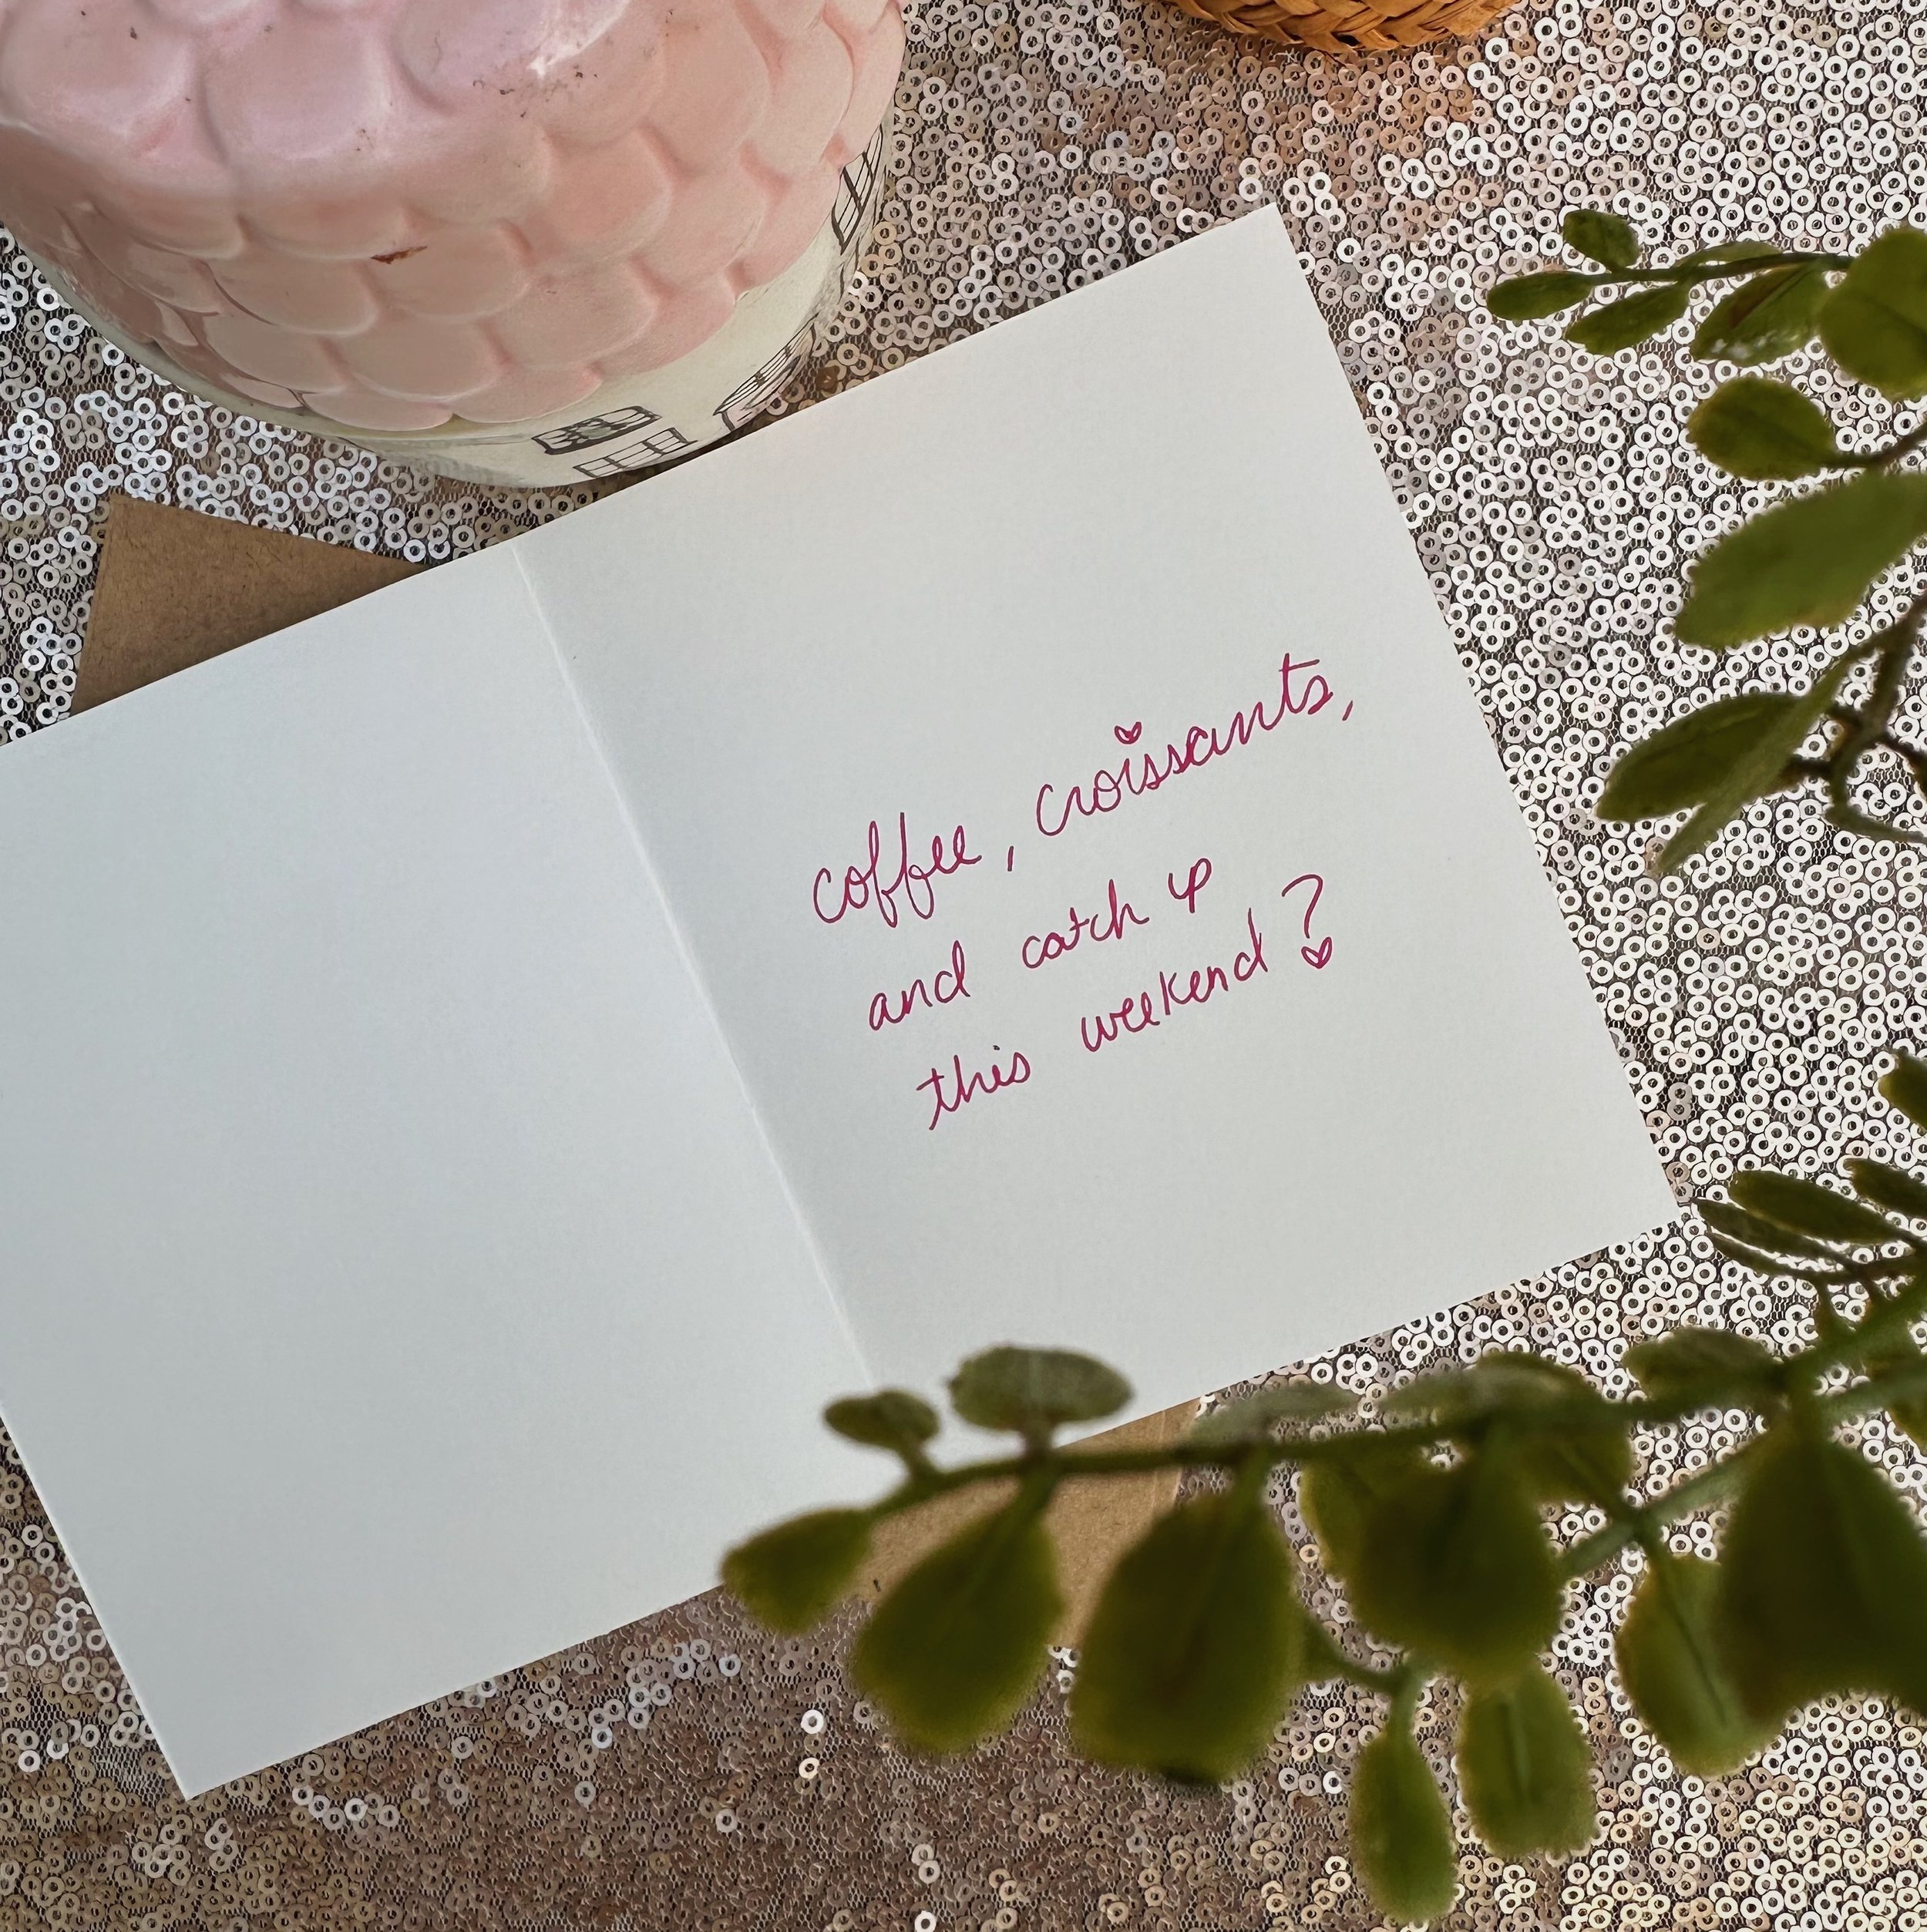 coffee, croissants,
and catch up
this weekend?